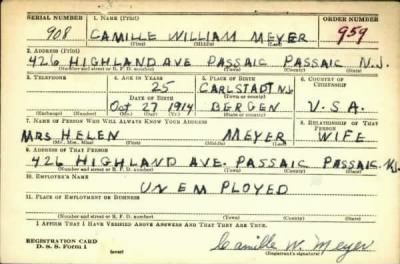 SERIAL NUMBER 1. NAME (Print) ORDER NUMBER
908 CAMILLE WILLIAM MEYER 959
(First) (Middle) (Last)
2. ADDRESS (Print)
426 HIGHLAND AVE PASSAIC PASSAIC N.J.
(Number and street or R. F. D. number) (Town) (County) (State)
3. TELEPHONE 4. AGE IN YEARS 5. PLACE OF BIRTH 6. COUNTRY OF CITIZENSHIP
25 CARLSTADT N.J.
DATE OF BIRTH (Town or county)
Oct 27 1914 BERGEN U.S.A.
(Exchange) (No.) (Mo.) (Day) (Yr.) (State or country)
7. NAME OF PERSON WHO WILL ALWAYS KNOW YOUR ADDRESS 8. RELATIONSHIP OF THAT PERSON
MRS HELEN MEYER WIFE
(Mr., Mrs., Miss) (First) (Middle) (Last)
9. ADDRESS OF THAT PERSON
426 HIGHLAND AVE. PASSAIC PASSAIC N.J.
(Number and street or R. F. D. number) (Town) (County) (State)
10. EMPLOYER'S NAME
UNEMPLOYED
11. PLACE OF EMPLOYMENT OR BUSINESS
(Number and street or R. F. D. number) (Town) (County) (State)
I AFFIRM THAT I HAVE VERIFIED ABOVE ANSWERS AND THAT THEY ARE TRUE.
REGISTRATION CARD
D. S. S. Form 1 (over) Camille W. Meyer
(Registrant's signature)